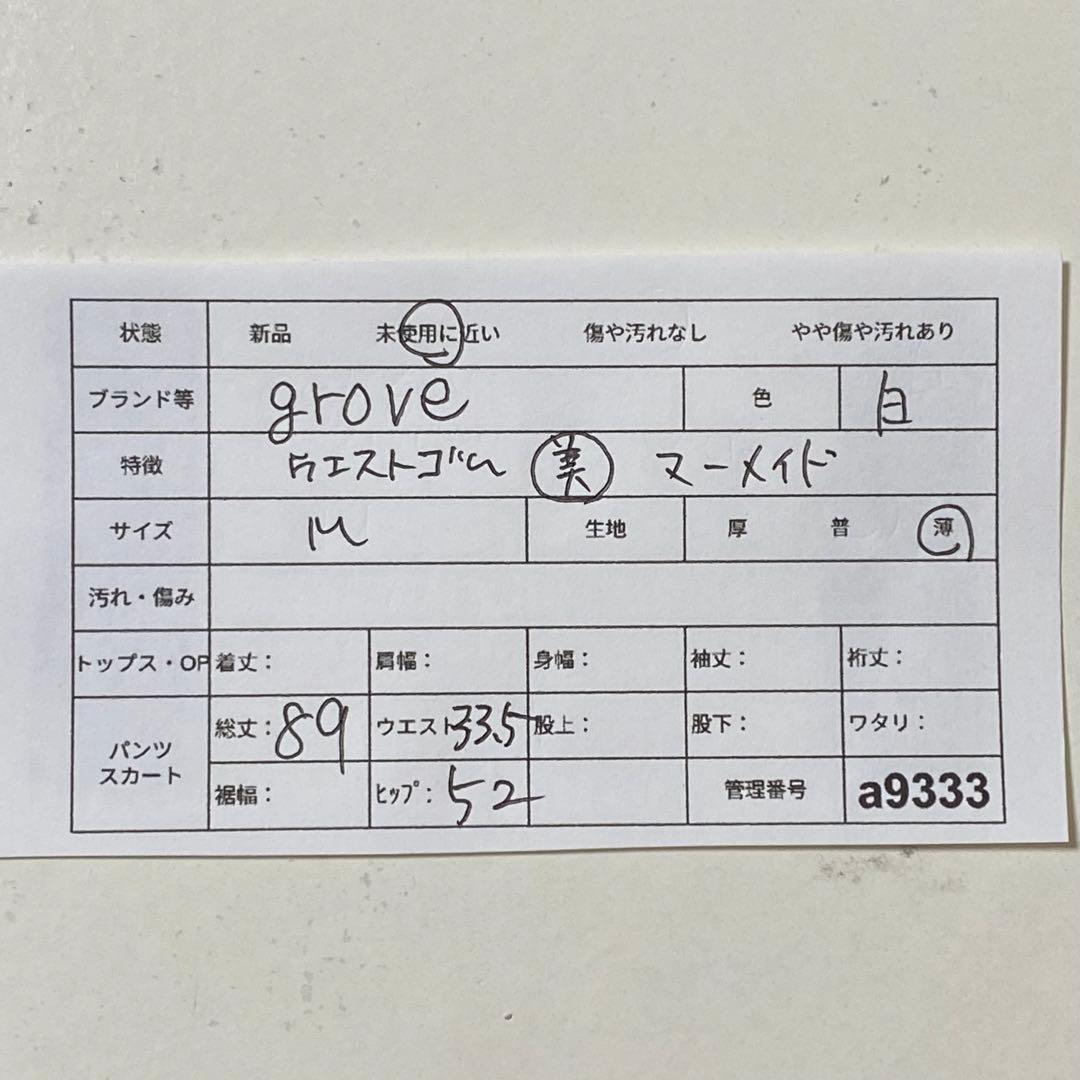 状態 新品 未使用に近い 傷や汚れなし やや傷や汚れあり
ブランド等 grove 色 白
特徴 ウエストゴム 美 マーメイド
サイズ M 生地 厚 普 薄
汚れ・傷み
トップス・OP 着丈： 肩幅： 身幅： 袖丈： 裄丈：
パンツ スカート 総丈：89 ウエスト33.5 股上： 股下： ワタリ：
裾幅： ﾋｯﾌﾟ：52 管理番号 a9333